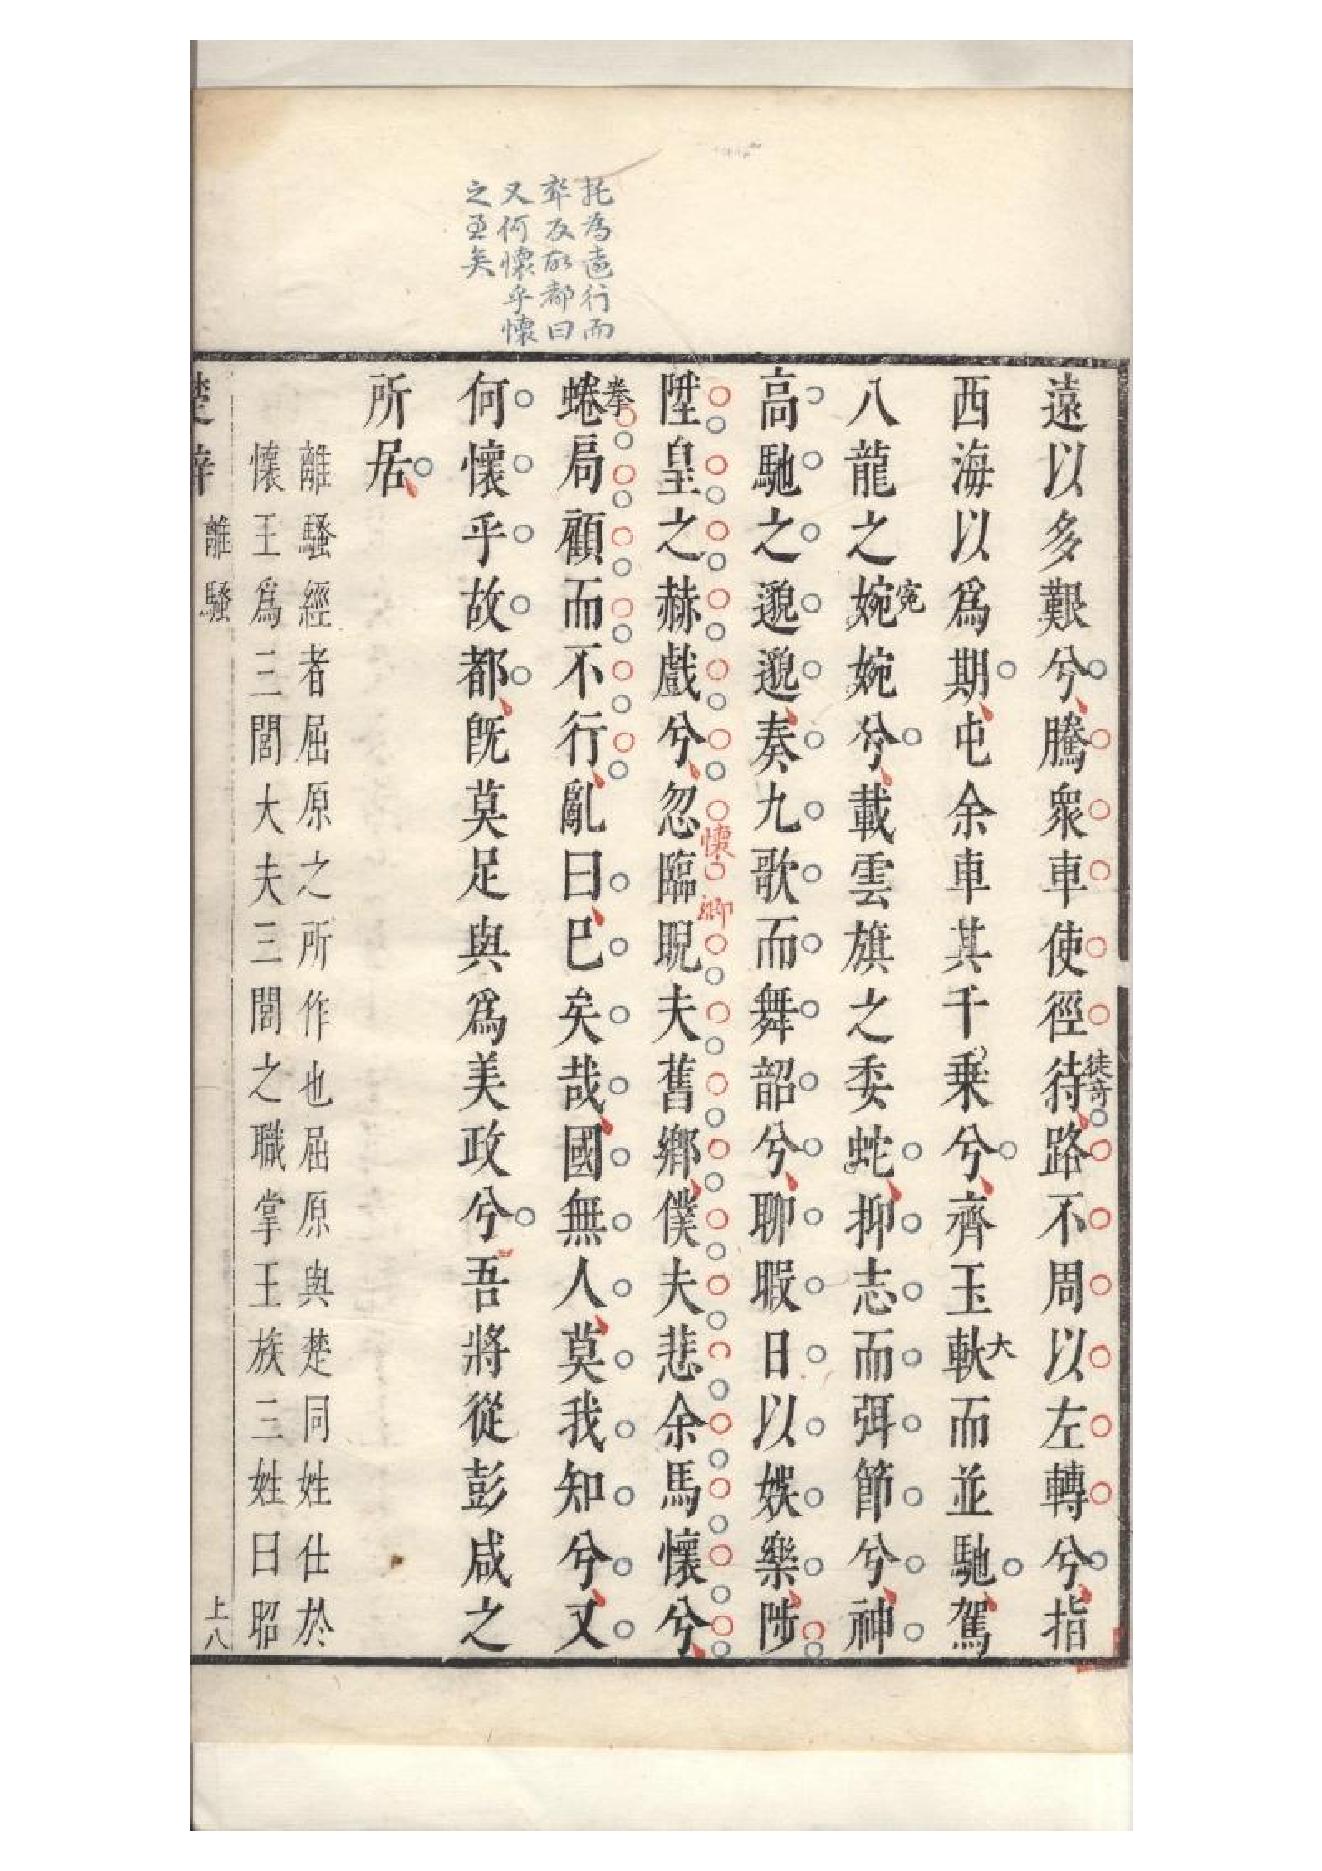 托為遠行而
卒反故都曰
又何懷乎懷
之至矣
遠以多艱兮騰衆車使徑待路不周以左轉兮指
徒奇
西海以爲期屯余車其千乗兮齊玉軑而並馳駕
大
八龍之婉婉兮載雲旗之委蛇抑志而弭節兮神
宛
高馳之邈邈奏九歌而舞韶兮聊暇日以娛樂陟
陞皇之赫戲兮忽臨睨夫舊鄉僕夫悲余馬懷兮
懷鄉
蜷局顧而不行亂曰巳矣哉國無人莫我知兮又
拳
何懷乎故都旣莫足與爲美政兮吾將從彭咸之
所居
離騷經者屈原之所作也屈原與楚同姓仕於
懷王爲三閭大夫三閭之職掌王族三姓曰昭
楚辭 離騷 上八